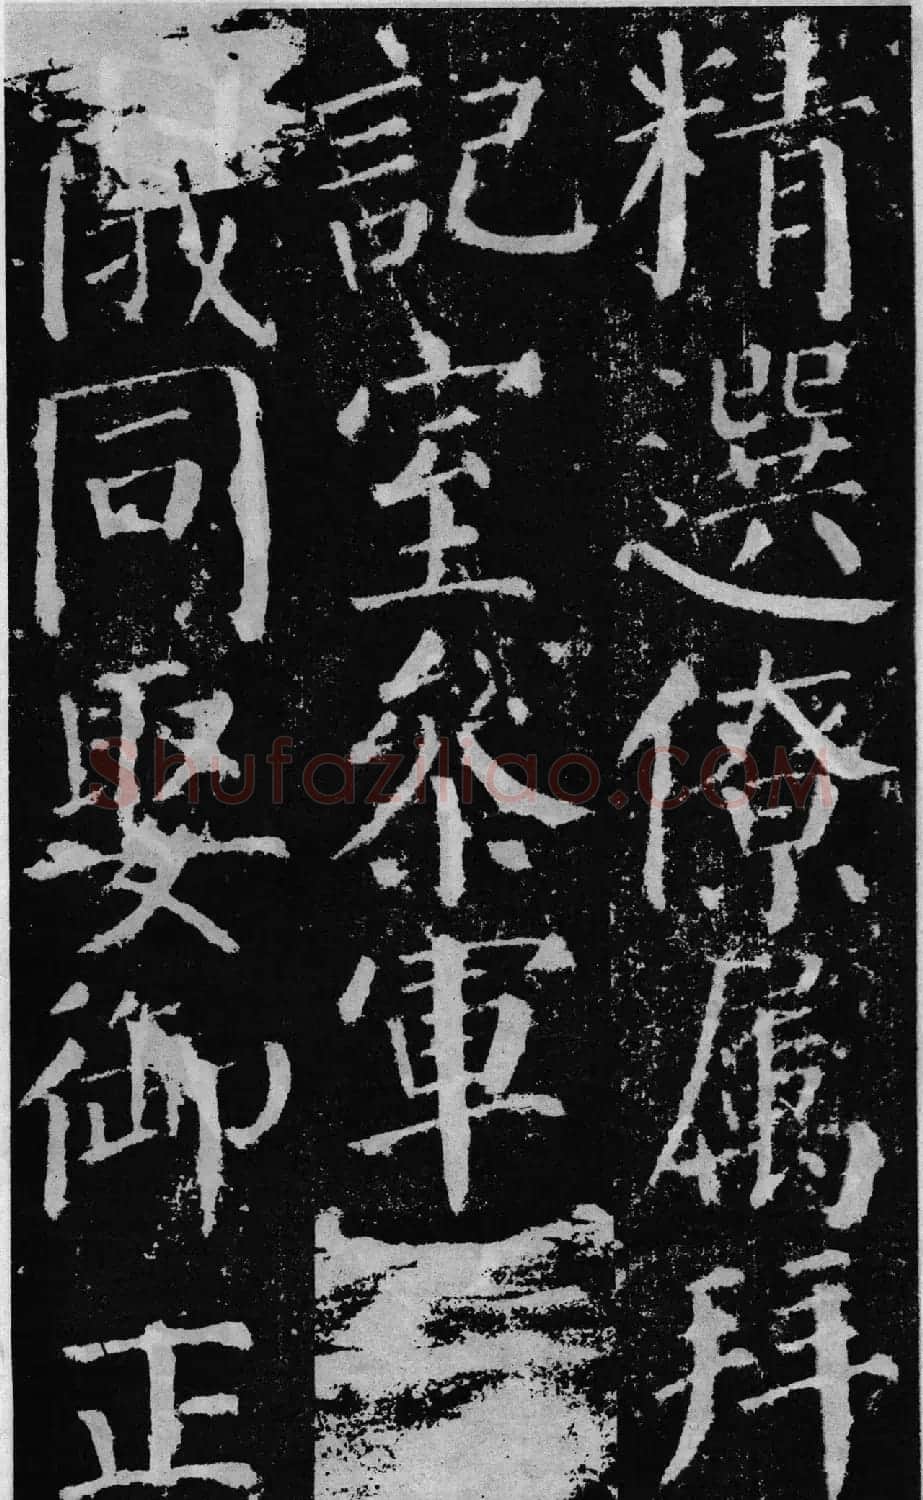 精選僚屬拜
記室參軍
儀同娶御正
Shufaziliao.COM